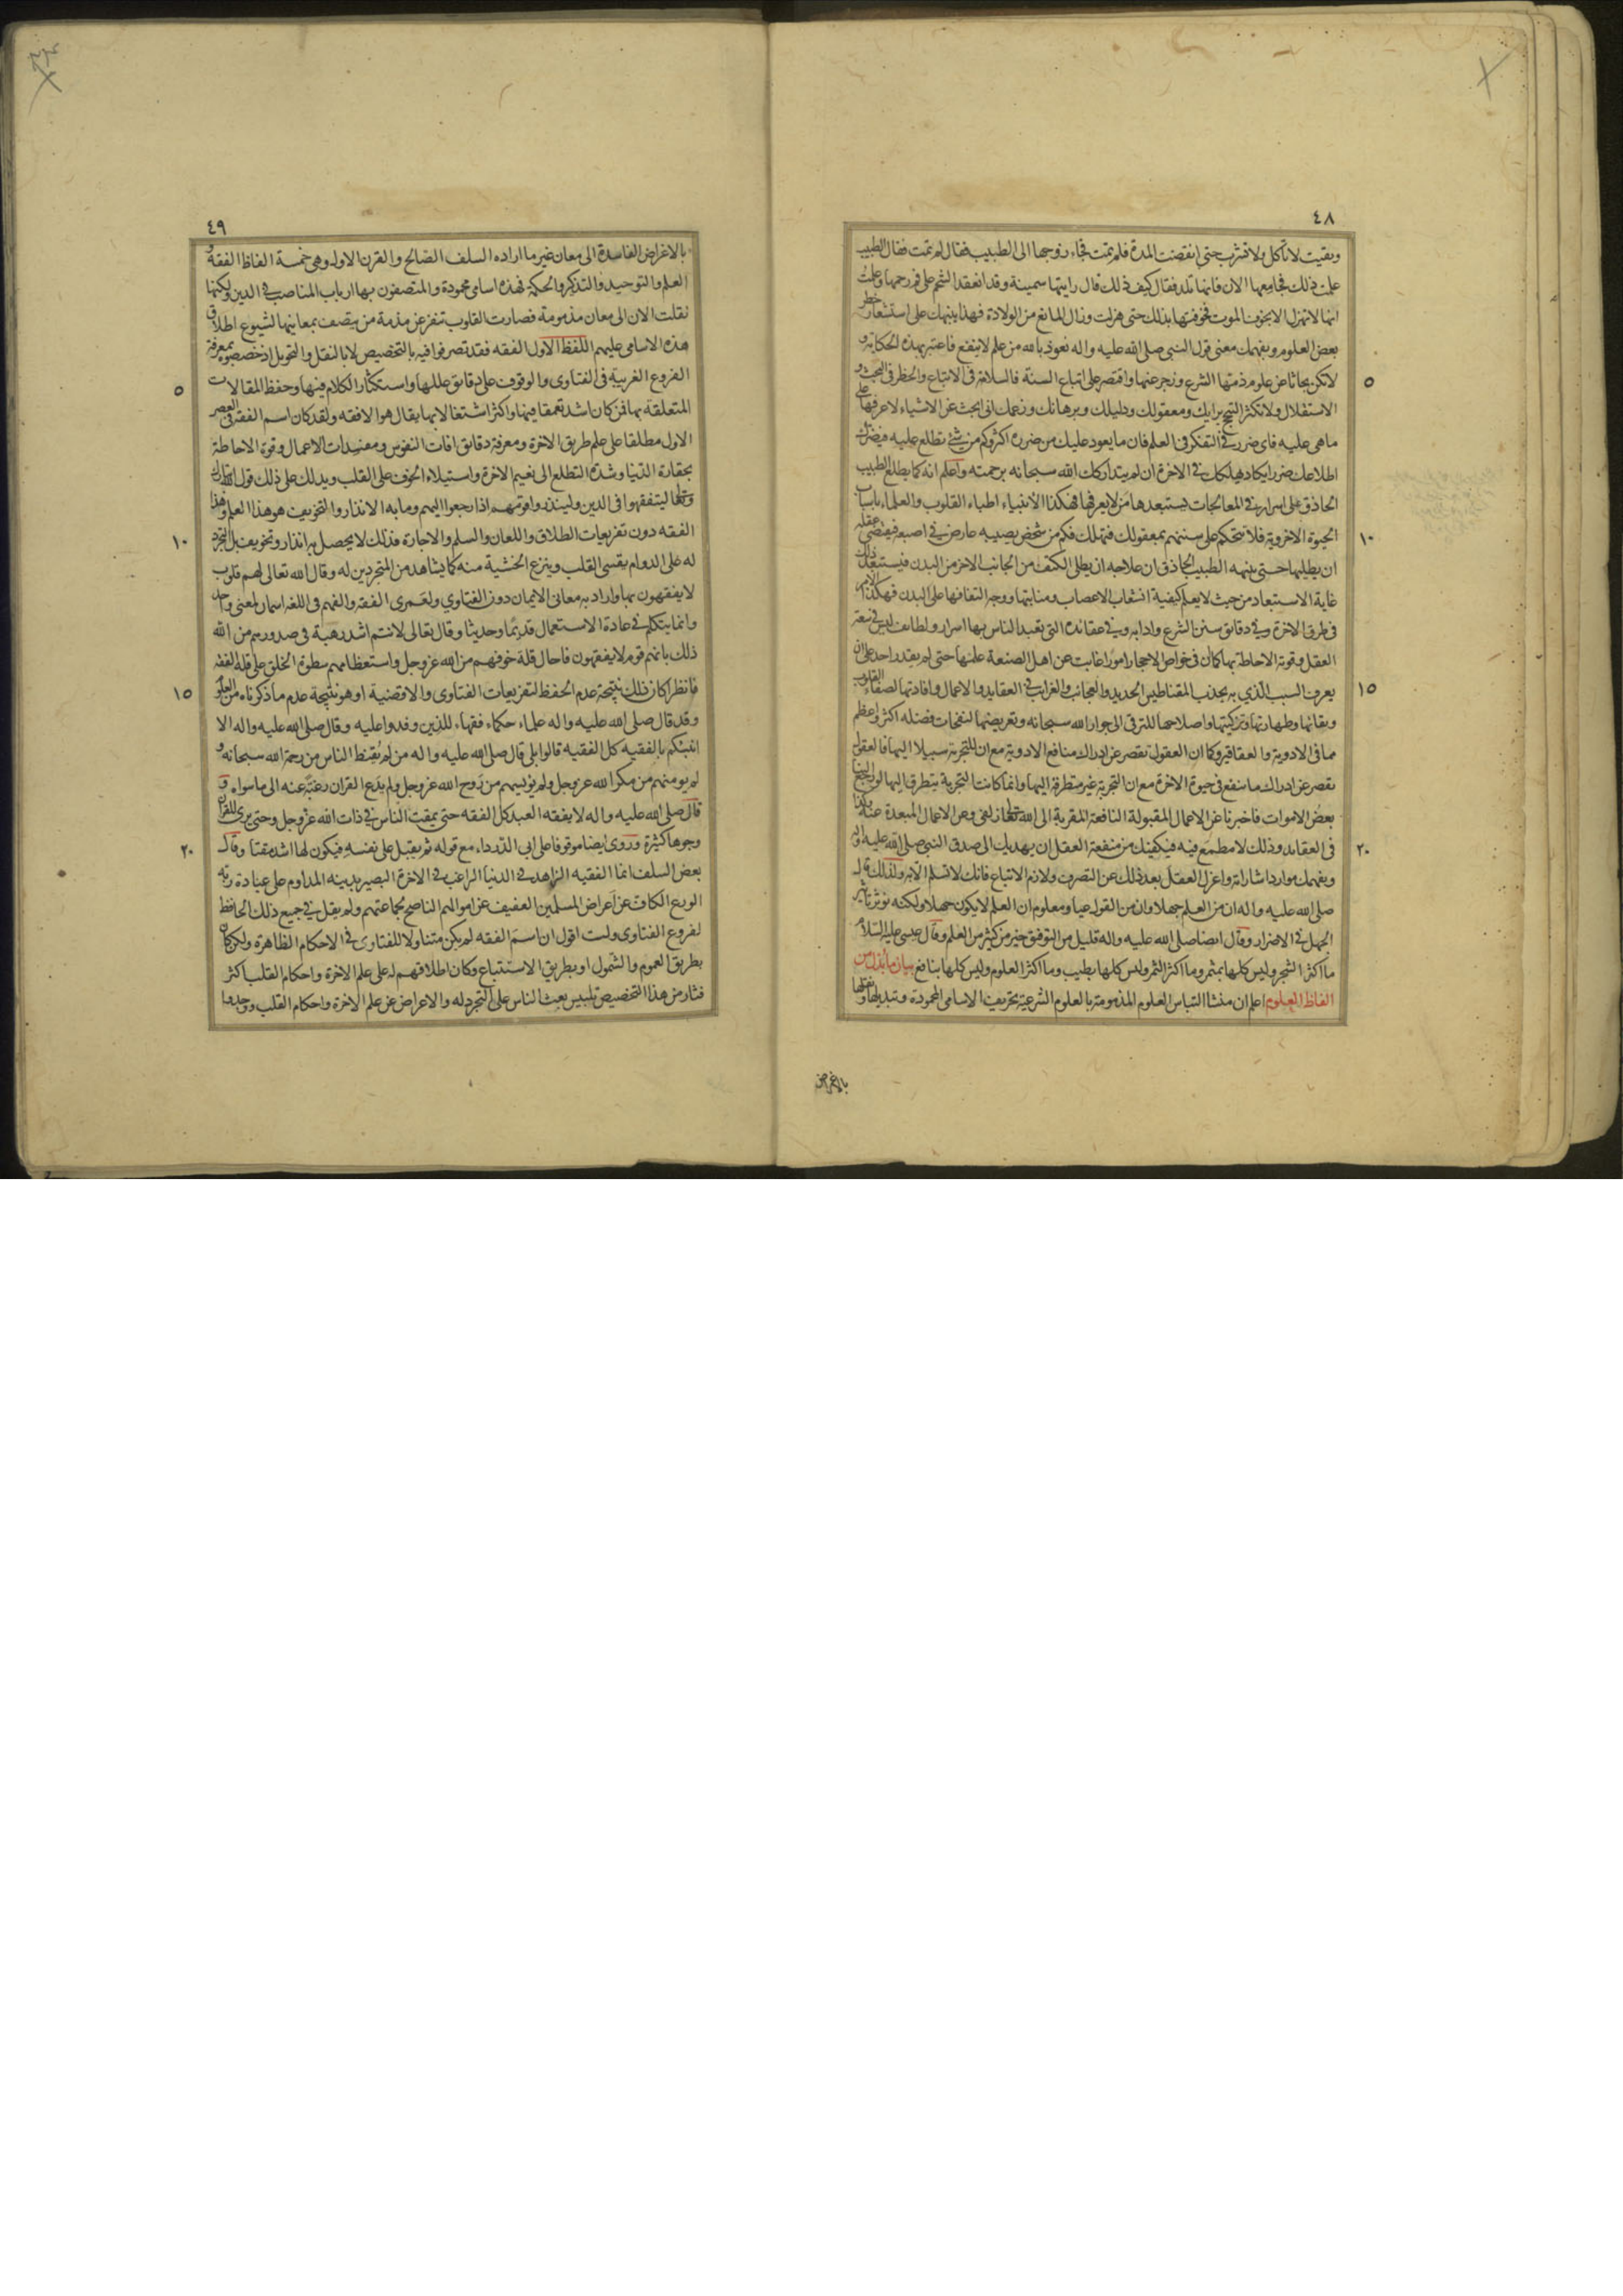 ٤٨
وبقيت لا تأكل ولا تشرب حتى انقضت المدة فلم تمت فجاء زوجها الى الطبيب فقال لم تمت فقال الطبيب
علمت ذلك فجامعها الان فانها تلد فقال كيف ذلك قال رايتها سمينة وقد انعقد الشحم على فم رحمها وعلمت
انها لا تهزل الا بخوف الموت فخوفتها بذلك حتى هزلت وزال المانع من الولادة فهذا ينبهك على استشعار خطر
بعض العلوم ويفهمك معنى قول النبي صلى الله عليه واله نعوذ بالله من علم لا ينفع فاعتبر بهذه الحكاية و
لا تكن بحاثا عن علوم ذمتها الشرع وزجر عنها واقتصر على اتباع السنة فالسلامة في الاتباع والخطر في البحث و
الاستقلال ولا تكثر التبجح برايك ومعقولك ودليلك وبرهانك وزعمك انى ابحث عن الاشياء لاعرفها على
ما هى عليه فاى ضرر في التفكر في العلم فان ما يعود عليك من ضرره اكثر وكم من شئ تطلع عليه فيضرك
اطلاعك ضررا يكاد يهلكك في الاخرة ان لم يتداركك الله سبحانه برحمته واعلم انه كما يطلع الطبيب
الحاذق على اسرار في المعالجات يستبعدها من لا يعرفها فهكذا الانبياء اطباء القلوب والعلماء باسباب
الحيوة الاخروية فلا تتحكم على سننهم بمعقولك فتهلك فكم من شخص يصيبه عارض في اصبعه فيقتضى عقله
ان يطليها حتى ينبهه الطبيب الحاذق ان علاجه ان يطلى الكتف من الجانب الاخر من البدن فيستبعد ذلك
غاية الاستبعاد من حيث لا يعلم كيفية انشعاب الاعصاب ومنابتها ووجه التفافها على البدن فهكذا الامر
في طرق الاخرة وفي دقائق سنن الشرع وادابه وفي عقائده التى تعبد الناس بها اسرار ولطايف ليس في سعة
العقل وقوته الاحاطة بها كما ان في خواص الاحجار امورا غابت عن اهل الصنعة علمها حتى لم يقدر احد على ان
يعرف السبب الذي به يجذب المقناطيس الحديد والعجائب والغرايب في العقايد والاعمال وافادتها لصفاء القلوب
ونقائها وطهارتها وتزكيتها واصلاحها للترقى الى جوار الله سبحانه وتعريضها لنفحات فضله اكثر واعظم
مما في الادوية والعقاقير وكما ان العقول تقصر عن ادراك منافع الادوية مع ان للتجربة سبيلا اليها فالعقول
تقصر عن ادراك ما ينفع في حيوة الاخرة مع ان التجربة غير متطرقة اليها وانما كانت التجربة يتطرق اليها لو رجع الينا
بعض الاموات فاخبرنا عن الاعمال المقبولة النافعة المقربة الى الله تعالى زلفى وعن الاعمال المبعدة عنه وكذا
في العقايد وذلك لا مطمع فيه فيكفيك من منفعة العقل ان يهديك الى صدق النبي صلى الله عليه واله
ويفهمك موارد اشاراته واعزل العقل بعد ذلك عن التصرف ولازم الاتباع فانك لا تسلم الا به ولذلك قال
صلى الله عليه واله ان من العلم جهلا وان من القول عيا ومعلوم ان العلم لا يكون جهلا ولكنه يؤثر تاثير
الجهل في الاضرار وقال ايضا صلى الله عليه واله قليل من التوفيق خير من كثير من العلم وقال عيسى عليه السلام
ما اكثر الشجر وليس كلها بمثمر وما اكثر الثمر وليس كلها بطيب وما اكثر العلوم وليس كلها بنافع بيان ما بدل من
الفاظ العلوم اعلم ان منشا التباس العلوم المذمومة بالعلوم الشرعية تحريف الاسامى المحمودة وتبديلها ونقلها
بالاغراض
٥
١٠
١٥
٢٠
٤٩
بالاغراض الفاسدة الى معان غير ما اراده السلف الصالح والقرن الاول وهى خمسة الفاظ الفقه و
العلم والتوحيد والتذكر والحكمة فهذه اسامى محمودة والمتصفون بها ارباب المناصب في الدين ولكنها
نقلت الان الى معان مذمومة فصارت القلوب تنفر عن مذمة من يتصف بمعانيها لشيوع اطلاق
هذه الاسامى عليهم اللفظ الاول الفقه فقد تصرفوا فيه بالتخصيص لا بالنقل والتحويل اذ خصصوه بمعرفة
الفروع الغريبة في الفتاوى والوقوف على دقائق عللها واستكثار الكلام فيها وحفظ المقالات
المتعلقة بها فمن كان اشد تعمقا فيها واكثر اشتغالا بها يقال هو الافقه ولقد كان اسم الفقه في العصر
الاول مطلقا على علم طريق الاخرة ومعرفة دقائق افات النفوس ومفسدات الاعمال وقوة الاحاطة
بحقارة الدنيا وشدة التطلع الى نعيم الاخرة واستيلاء الخوف على القلب ويدلك على ذلك قول الله تبارك
وتعالى ليتفقهوا في الدين ولينذروا قومهم اذا رجعوا اليهم وما به الانذار والتخويف هو هذا العلم وهذا
الفقه دون تفريعات الطلاق واللعان والسلم والاجارة فذلك لا يحصل به انذار وتخويف بل التجرد
له على الدوام يقسى القلب وينزع الخشية منه كما يشاهد من المتجردين له وقال الله تعالى لهم قلوب
لا يفقهون بها واراد به معانى الايمان دون الفتاوي ولعمرى الفقه والفهم في اللغه اسمان لمعنى واحد
وانما يتكلم في عادة الاستعمال قديما وحديثا وقال تعالى لانتم اشد رهبة في صدورهم من الله
ذلك بانهم قوم لا يفقهون فاحال قلة خوفهم من الله عز وجل واستعظامهم سطوة الخلق على قلة الفقه
فانظر اكان ذلك نتيجة عدم الحفظ لتفريعات الفتاوى والاقضية او هو نتيجة عدم ما ذكرناه من العلوم
وقد قال صلى الله عليه واله علماء حكماء فقهاء للذين وفدوا عليه وقال صلى الله عليه واله الا
انبئكم بالفقيه كل الفقيه قالوا بلى قال صلى الله عليه واله من لم يقنط الناس من رحمة الله سبحانه و
لم يومنهم من مكر الله عز وجل ولم يؤيسهم من روح الله عز وجل ولم يدع القران رغبة عنه الى ما سواه و
قال صلى الله عليه واله لا يفقه العبد كل الفقه حتى يمقت الناس في ذات الله عز وجل وحتى يرى للقران
وجوها كثيرة وروى ايضا موقوفا على ابى الدرداء مع قوله ثم يقبل على نفسه فيكون لها اشد مقتا وقال
بعض السلف انما الفقيه الزاهد في الدنيا الراغب في الاخرة البصير بدينه المداوم على عبادة ربه
الورع الكاف عن اعراض المسلمين العفيف عن اموالهم الناصح لجماعتهم ولم يقل في جميع ذلك الحافظ
لفروع الفتاوى ولست اقول ان اسم الفقه لم يكن متناولا للفتاوى في الاحكام الظاهرة ولكن كان
بطريق العموم والشمول او بطريق الاستتباع وكان اطلاقهم له على علم الاخرة واحكام القلب اكثر
فثار من هذا التخصيص تلبيس بعث الناس على التجرد له والاعراض عن علم الاخرة واحكام القلب ووجدوا
٥
١٠
١٥
٢٠